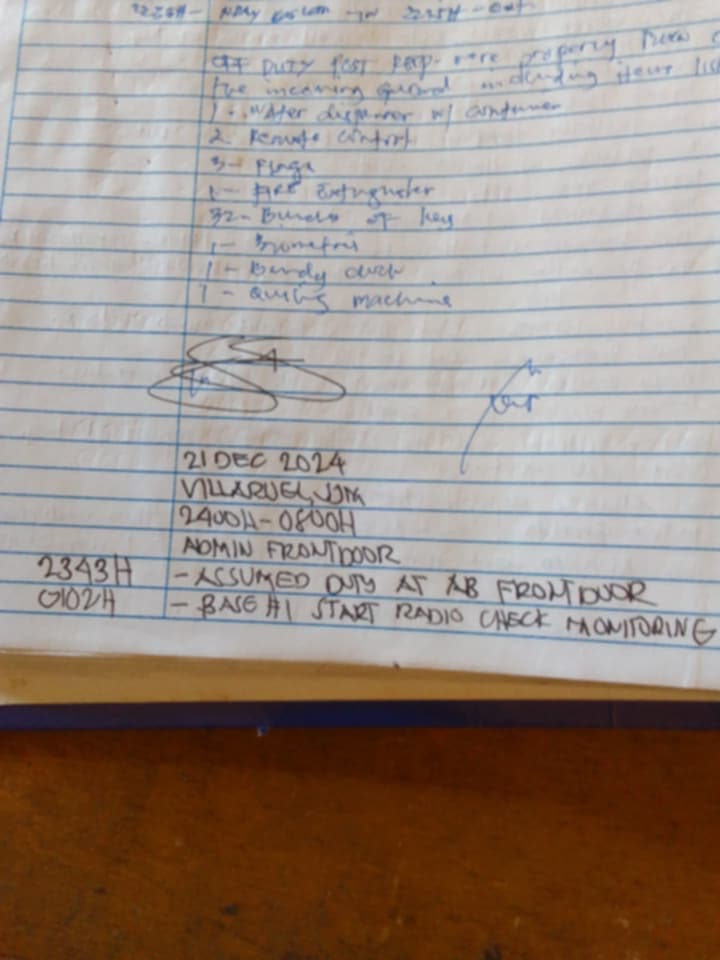 OFF DUTY post property
the incoming guard including items
1 - water dispenser w/ container
2 Remote control
3 - Flags
1 - Fire Extinguisher
32 - Bundo of key
1 - Biometric
1 - Bundy clock
1 - Quing machine
21 DEC 2024
VILLARUEL, JOM
2400H-0800H
ADMIN FRONTDOOR
2343H - ASSUMED DUTY AT AB FRONTDOOR
0102H - BASE #1 START RADIO CHECK MONITORING